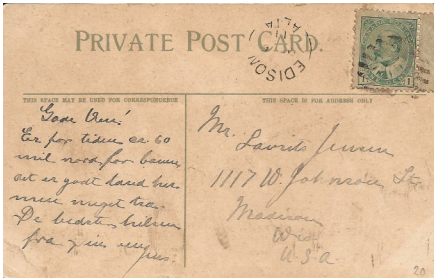 PRIVATE POST CARD.
EDISON
ALTA
1
THIS SPACE MAY BE USED FOR CORRESPONDENCE
THIS SPACE IS FOR ADDRESS ONLY
Gode Ven!
Er for tiden ca. 60
mil nord for
det er godt land her
men meget
De bedste hilsener
fra
Mr. Lavrits Jensen
1117 W. Johnson St.
Madison
Wis
U.S.A
20